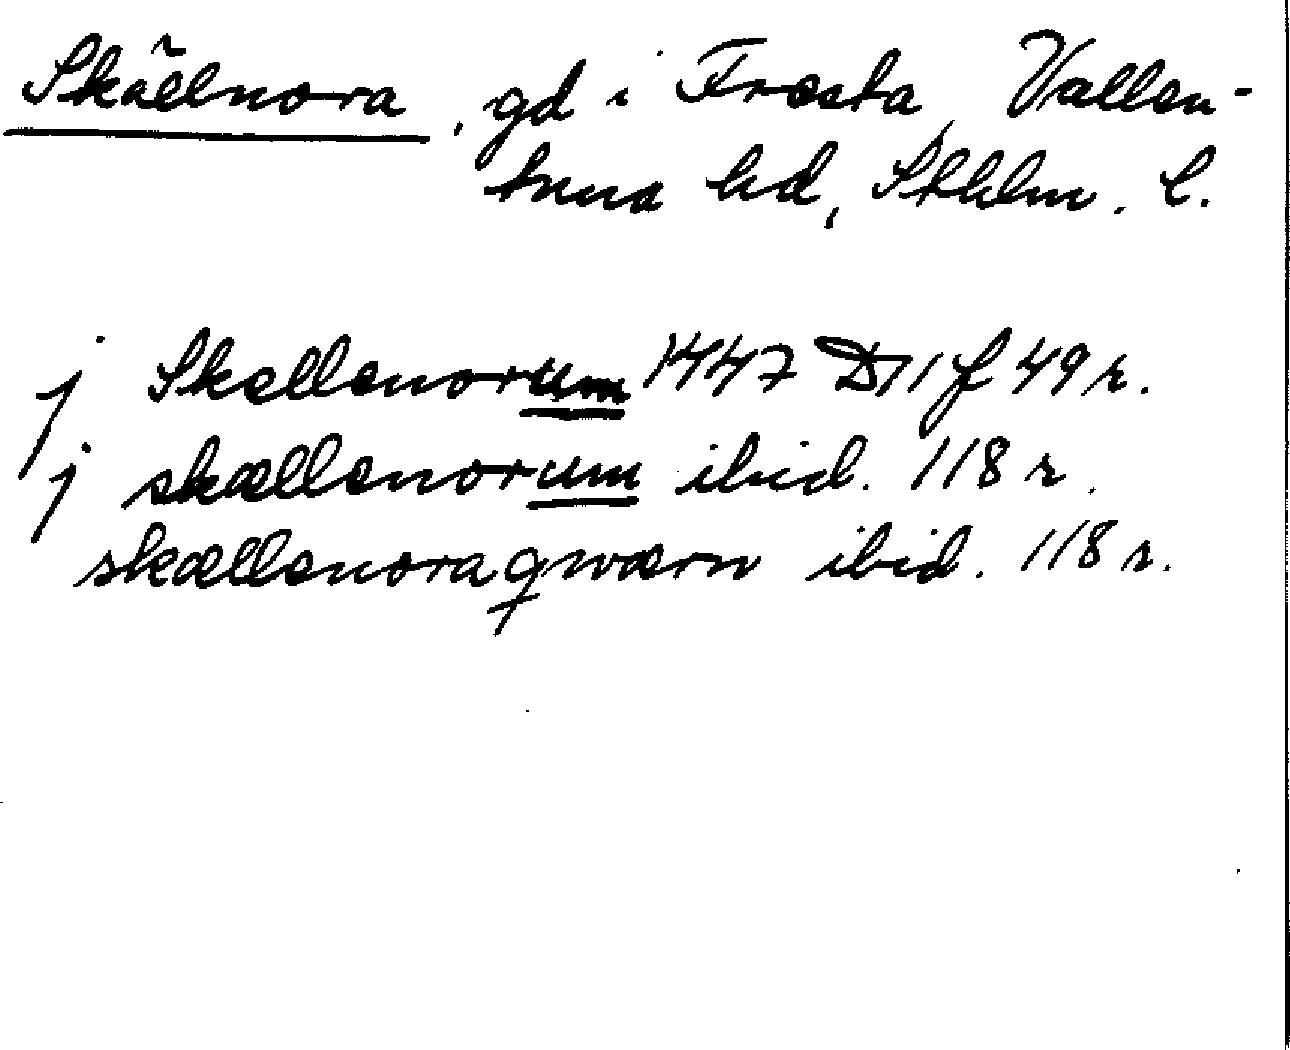 Skällnora, gd i Fresta, Vallen-
tuna hd, Sthlm. l.
j Skellenorum 1447 D11 f 49 r.
j skællenorum ibid. 118 r.
skællenoraqwærn ibid. 118 r.